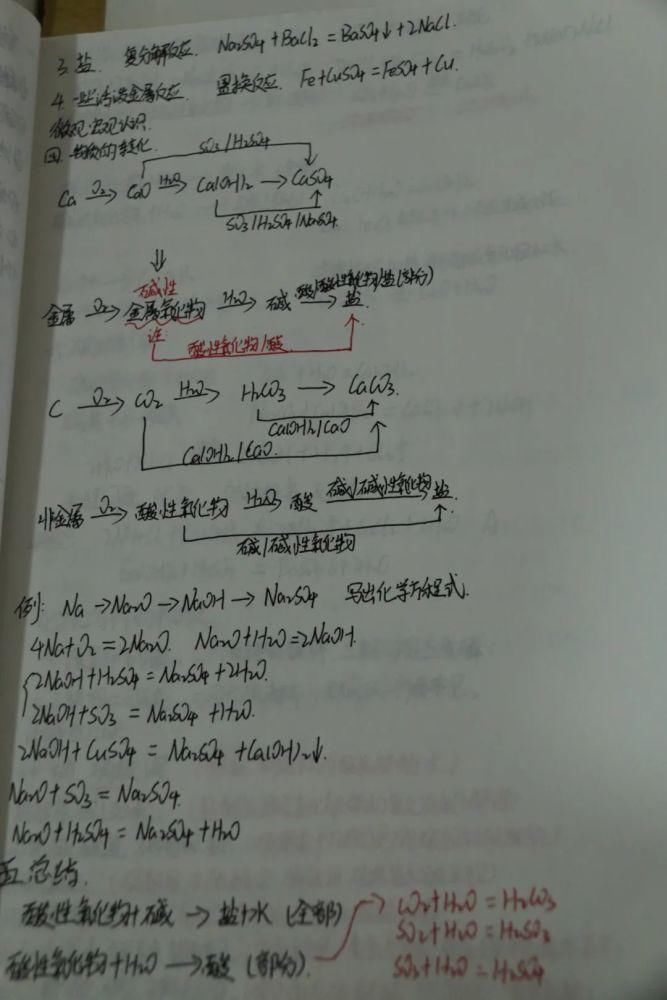 3. 盐. 复分解反应. Na2SO4+BaCl2=BaSO4↓+2NaCl.
4. 一些活泼金属反应. 置换反应. Fe+CuSO4=FeSO4+Cu.
微观宏观认识.
四. 物质的转化.
SO3/H2SO4
Ca O2→ CaO H2O→ Ca(OH)2 → CaSO4
SO3/H2SO4/Na2SO4
⇓
碱性
金属 O2→ 金属氧化物 H2O→ 碱 酸/酸性氧化物/盐(部分)→ 盐.
酸性氧化物/酸
C O2→ CO2 H2O→ H2CO3 → CaCO3.
Ca(OH)2/CaO
Ca(OH)2/CaO.
非金属 O2→ 酸性氧化物 H2O→ 酸 碱/碱性氧化物→ 盐.
碱/碱性氧化物
例: Na→Na2O→NaOH→Na2SO4 写出化学方程式.
4Na+O2=2Na2O. Na2O+H2O=2NaOH.
2NaOH+H2SO4=Na2SO4+2H2O.
2NaOH+SO3=Na2SO4+H2O.
2NaOH+CuSO4=Na2SO4+Cu(OH)2↓.
Na2O+SO3=Na2SO4.
Na2O+H2SO4=Na2SO4+H2O
五 总结.
酸性氧化物+碱→盐+水(全部)
酸性氧化物+H2O→酸(部分).
CO2+H2O=H2CO3
SO2+H2O=H2SO3
SO3+H2O=H2SO4